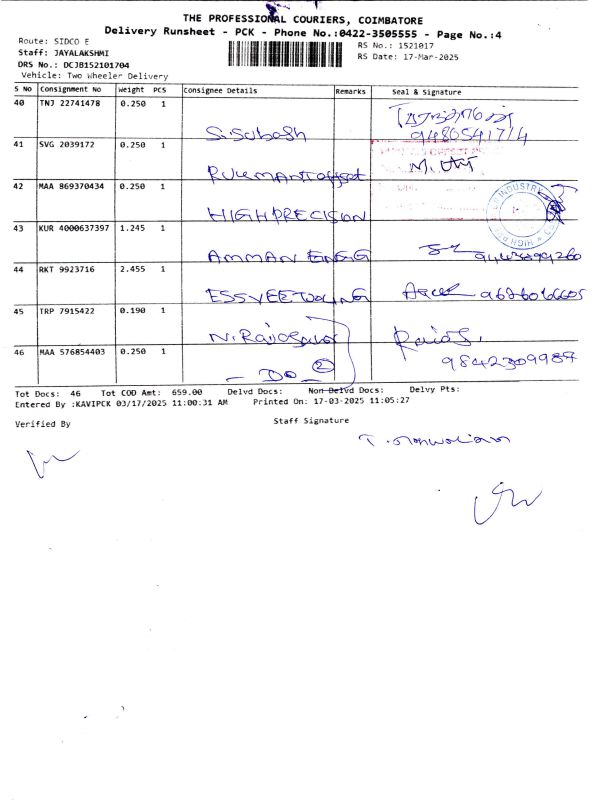 THE PROFESSIONAL COURIERS, COIMBATORE
Delivery Runsheet - PCK - Phone No.:0422-3505555 - Page No.:4
Route: SIDCO E
RS No.: 1521017
Staff: JAYALAKSHMI
RS Date: 17-Mar-2025
DRS No.: DCJB152101704
Vehicle: Two Wheeler Delivery
S No Consignment No Weight PCS Consignee Details Remarks Seal & Signature
40 TNJ 22741478 0.250 1
S.Subash
41 SVG 2039172 0.250 1
RUKMANI offset
42 MAA 869370434 0.250 1
HIGH PRECISION
43 KUR 4000637397 1.245 1
AMMAN ENGG
44 RKT 9923716 2.455 1
ESSVEE
45 TRP 7915422 0.190 1
46 MAA 576854403 0.250 1
- Do - 2
9842309987
Tot Docs: 46 Tot COD Amt: 659.00 Delvd Docs: Non Delvd Docs: Delvy Pts:
Entered By :KAVIPCK 03/17/2025 11:00:31 AM Printed On: 17-03-2025 11:05:27
Verified By
Staff Signature